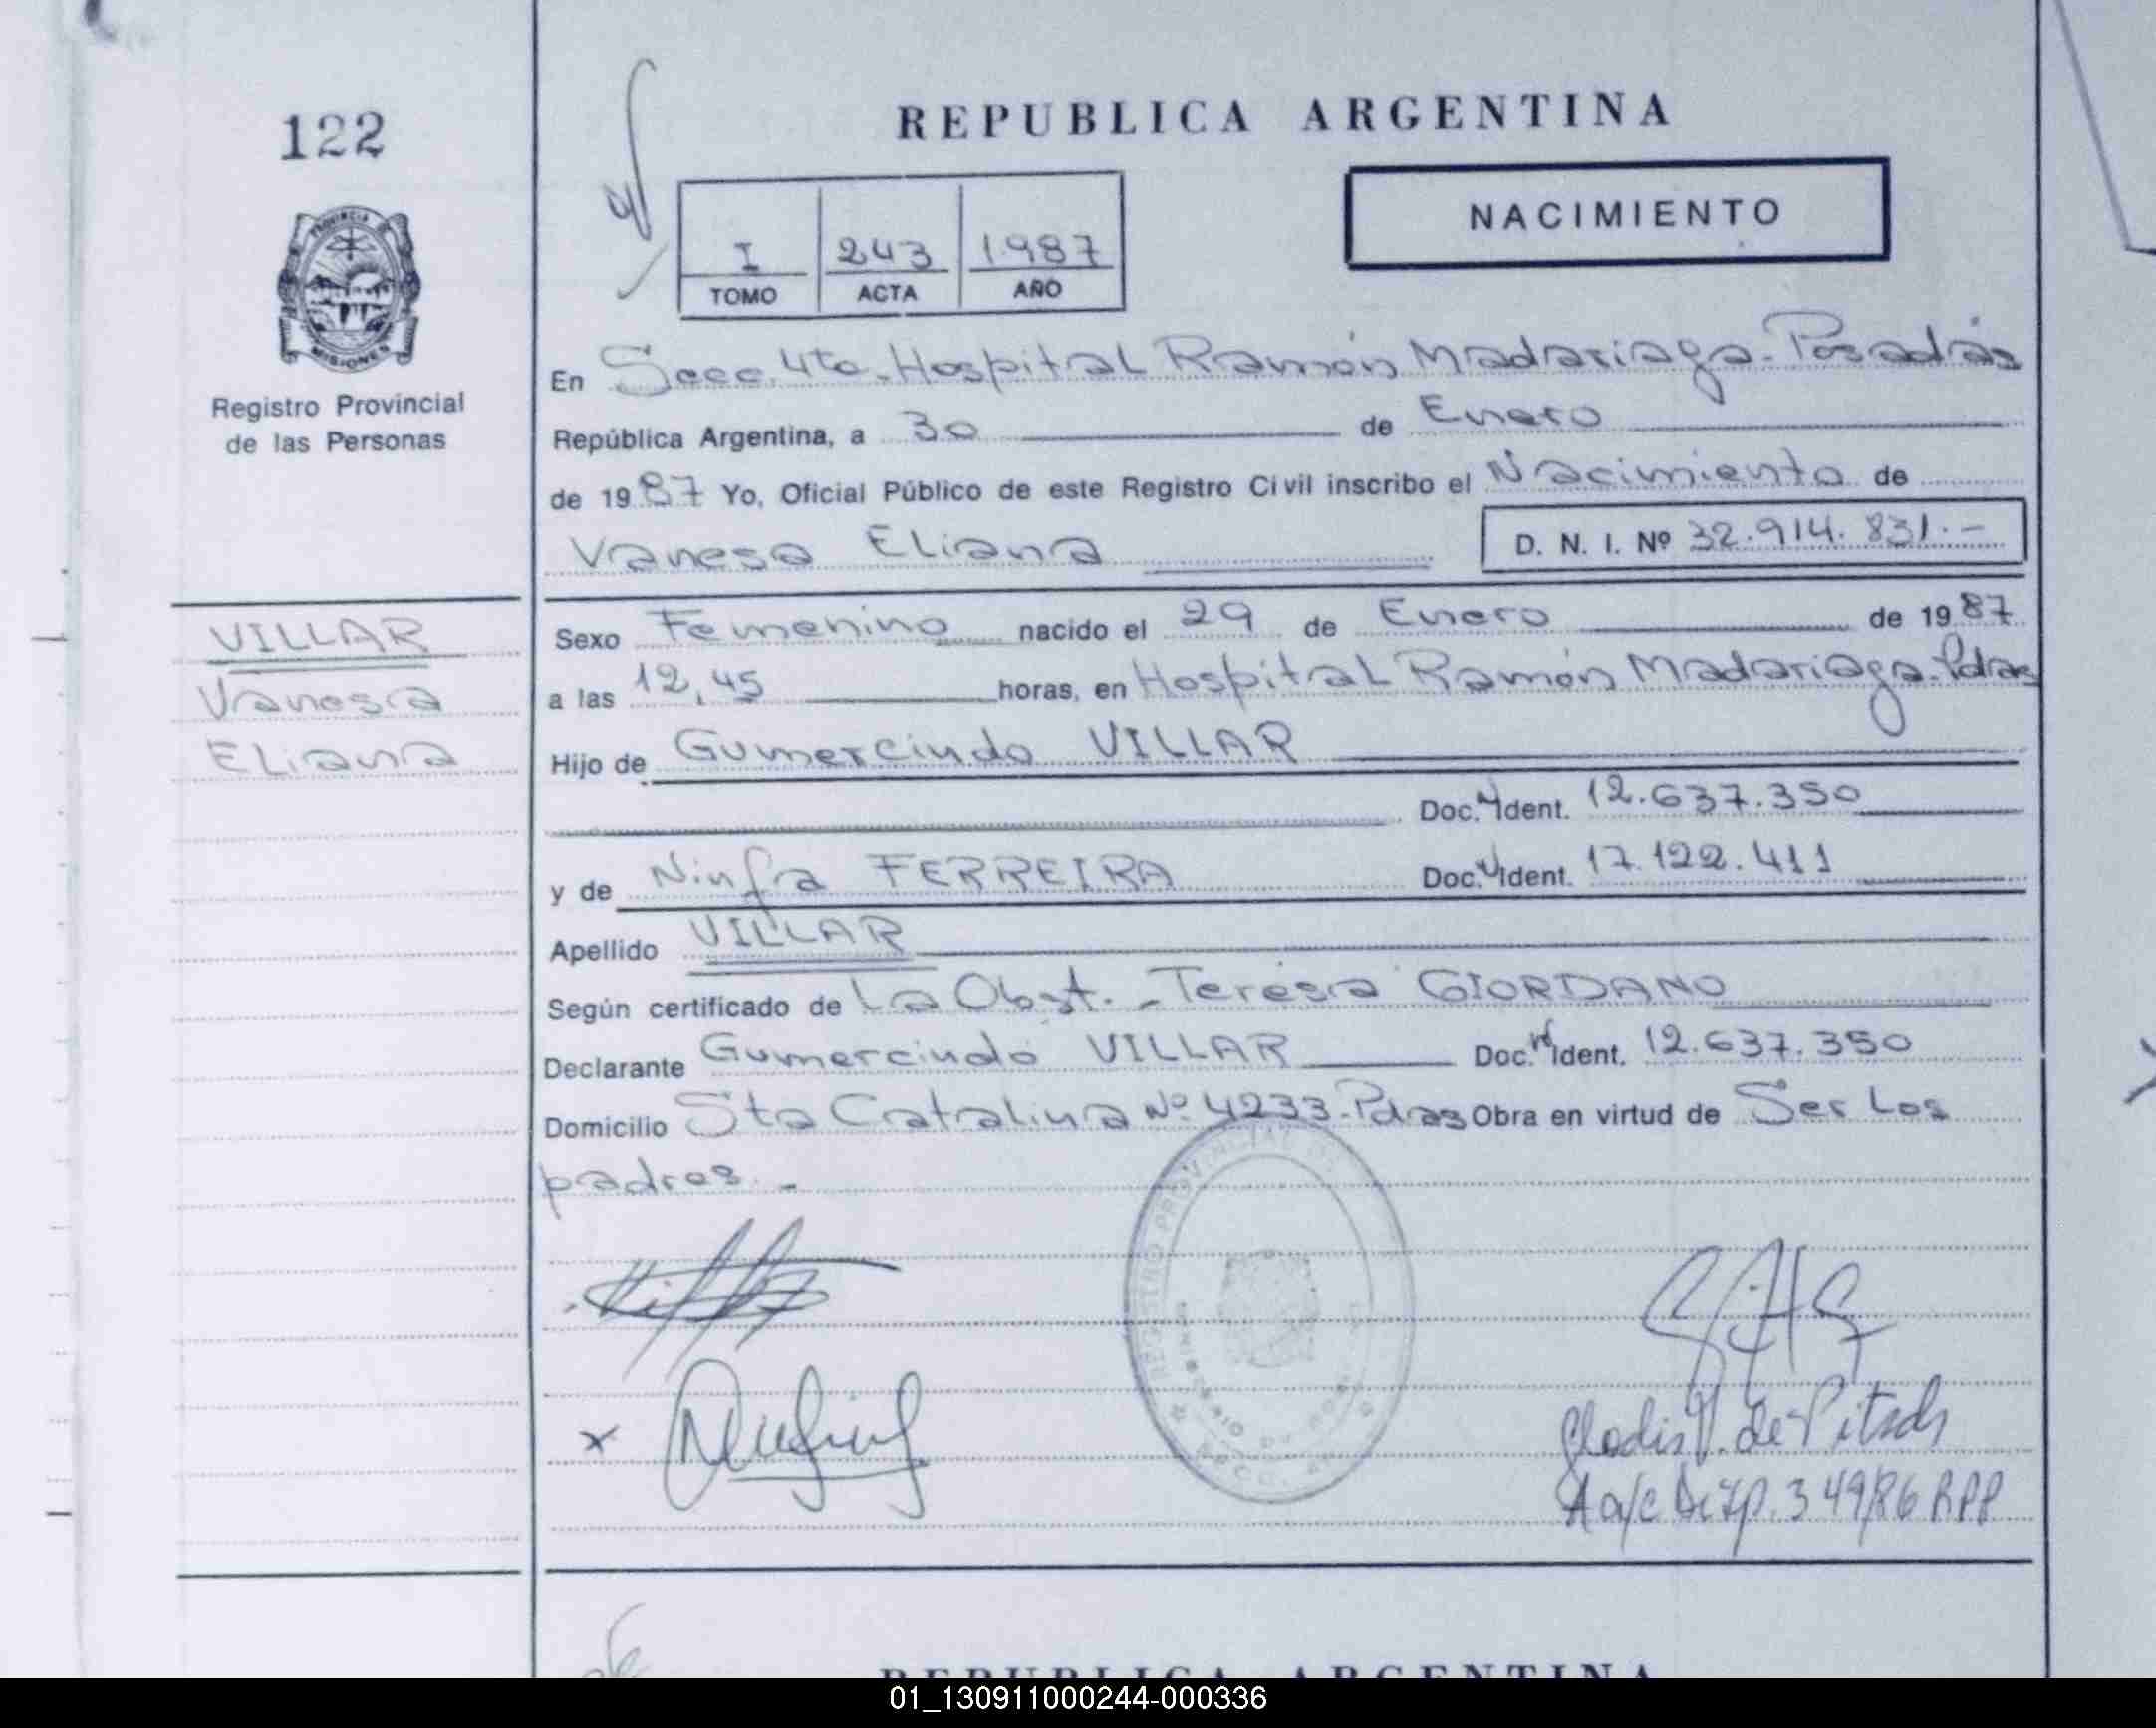 122
PROVINCIA
MISIONES
Registro Provincial
de las Personas
VILLAR
Vanesa
Eliana
REPUBLICA ARGENTINA
I 243 1987
TOMO ACTA AÑO
NACIMIENTO
En Secc. 4ta. Hospital Ramón Madariaga - Posadas
República Argentina, a 30 de Enero
de 1987 Yo, Oficial Público de este Registro Civil inscribo el Nacimiento de
Vanesa Eliana D. N. I. Nº 32.914.831.-
Sexo Femenino nacido el 29 de Enero de 1987
a las 12,45 horas, en Hospital Ramón Madariaga-Pdas
Hijo de Gumercindo VILLAR
Doc. Ident. 12.637.350
y de Ninfa FERREIRA Doc. Ident. 17.122.411
Apellido VILLAR
Según certificado de La Obst. - Teresa GIORDANO
Declarante Gumercindo VILLAR Doc. Ident. 12.637.350
Domicilio Sta Catalina Nº 4233-Pdas Obra en virtud de Ser Los
padres.-
REGISTRO PROVINCIAL
de Pitsch
A a/c Disp. 349/86 RPP
REPUBLICA ARGENTINA
01_130911000244-000336